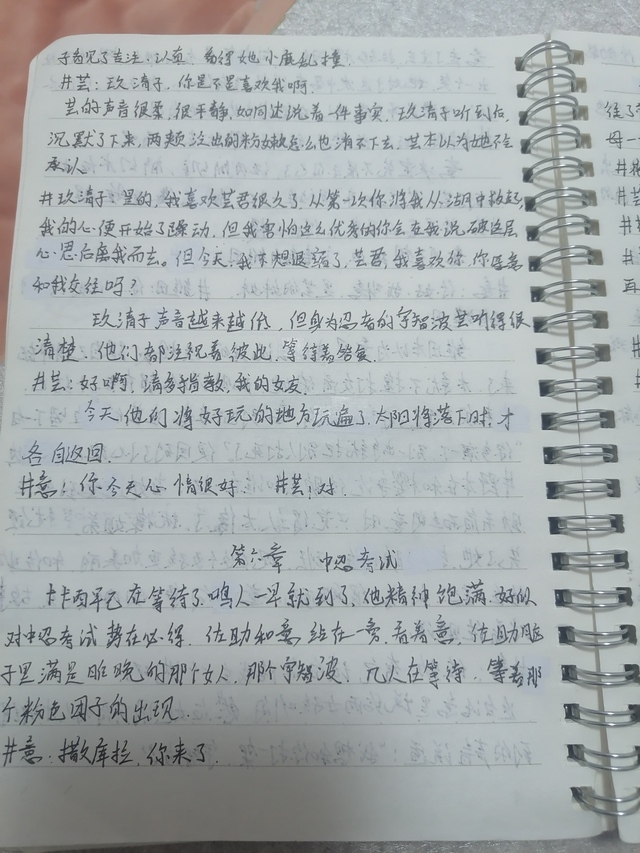 子布尼了专注、认真，易得她小鹿乱撞
井芸：玖清子，你是不是喜欢我啊
芸的声音很柔，很平静，如同述说着一件事实，玖清子听到后，
沉默了下来，两颊泛出的粉嫩怎么也消不下去，芸本以为她不会
承认
井玖清子：是的，我喜欢芸君很久了，从第一次你将我从湖中救起，
我的心便开始了躁动，但我害怕这么优秀的你会在我说破这层
心思后离我而去。但今天，我不想退缩了，芸君，我喜欢你，你愿意
和我交往吗？
玖清子声音越来越低，但身为忍者的宇智波芸听得很
清楚，他们都注视着彼此，等待着答复
井芸：好啊，请多指教，我的女友
今天他们将好玩的地方玩遍了，太阳将落下时，才
各自返回
井意：你今天心情很好 井芸：对
第六章 中忍考试
卡卡西早已在等待了，鸣人一早就到了，他精神饱满，好似
对中忍考试势在必得，佐助和意站在一旁，看着意，佐助脑
子里满是昨晚的那个女人，那个宇智波，几人在等待，等着那
个粉色团子的出现
井意：撒库拉，你来了
往了
母一
井
井
再